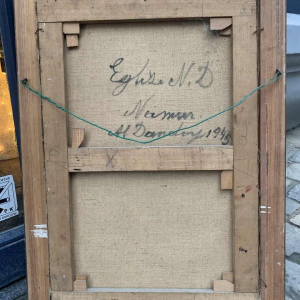 Eglise N.D
Namur.
M Dandoy 1946